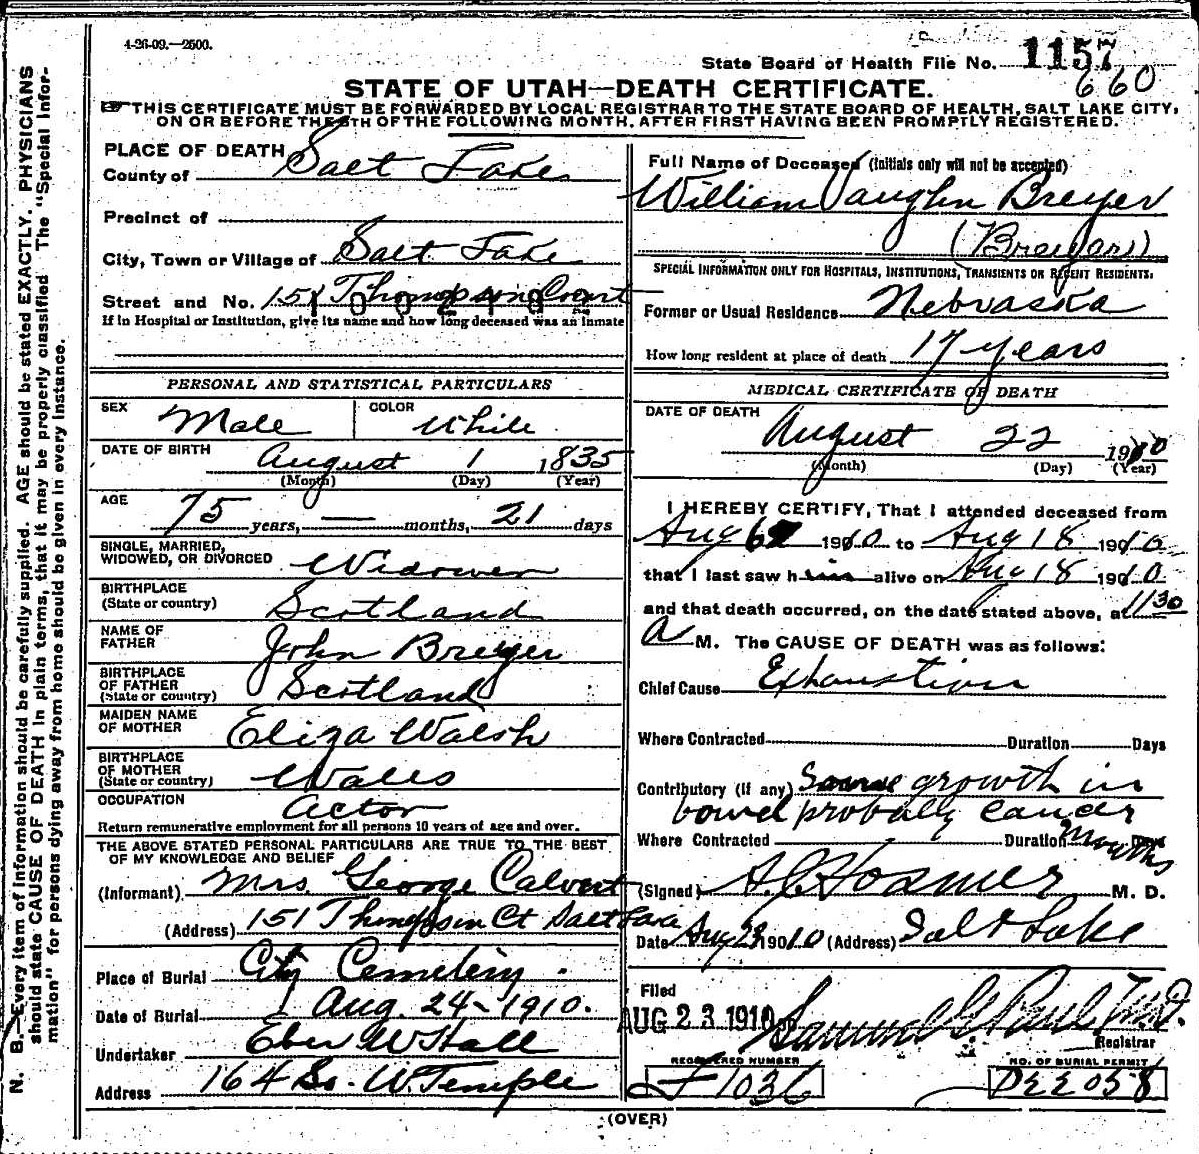 4-26-09.—2500.
State Board of Health File No. 1157
660
STATE OF UTAH—DEATH CERTIFICATE.
THIS CERTIFICATE MUST BE FORWARDED BY LOCAL REGISTRAR TO THE STATE BOARD OF HEALTH, SALT LAKE CITY,
ON OR BEFORE THE 5TH OF THE FOLLOWING MONTH, AFTER FIRST HAVING BEEN PROMPTLY REGISTERED.
N. B.—Every item of information should be carefully supplied. AGE should be stated EXACTLY. PHYSICIANS
should state CAUSE OF DEATH in plain terms, that it may be properly classified. The "Special Infor-
mation" for persons dying away from home should be given in every instance.
PLACE OF DEATH
County of Salt Lake
Precinct of
City, Town or Village of Salt Lake
Street and No. 151 Thompson Court
If in Hospital or Institution, give its name and how long deceased was an inmate
PERSONAL AND STATISTICAL PARTICULARS
SEX Male COLOR White
DATE OF BIRTH August 1 1835
(Month) (Day) (Year)
AGE 75 years, — months, 21 days
SINGLE, MARRIED,
WIDOWED, OR DIVORCED Widower
BIRTHPLACE
(State or country) Scotland
NAME OF
FATHER John Breyer
BIRTHPLACE
OF FATHER
(State or country) Scotland
MAIDEN NAME
OF MOTHER Eliza Walsh
BIRTHPLACE
OF MOTHER
(State or country) Wales
OCCUPATION Actor
Return remunerative employment for all persons 10 years of age and over.
THE ABOVE STATED PERSONAL PARTICULARS ARE TRUE TO THE BEST
OF MY KNOWLEDGE AND BELIEF
(Informant) Mrs. George Calvert
(Address) 151 Thompson Ct Salt Lake
Place of Burial City Cemetery.
Date of Burial Aug. 24-1910.
Undertaker Eber W Hall
Address 164 So. W. Temple
Full Name of Deceased (initials only will not be accepted)
William Vaughn Breyer
SPECIAL INFORMATION ONLY FOR HOSPITALS, INSTITUTIONS, TRANSIENTS OR RECENT RESIDENTS.
Former or Usual Residence Nebraska
How long resident at place of death 17 years
MEDICAL CERTIFICATE OF DEATH
DATE OF DEATH
August 22 1910
(Month) (Day) (Year)
I HEREBY CERTIFY, That I attended deceased from
Aug 1910 to Aug 18 1910
that I last saw him alive on Aug 18 1910
and that death occurred, on the date stated above, at 11 30
A M. The CAUSE OF DEATH was as follows:
Chief Cause Exhaustion
Where Contracted Duration Days
Contributory (if any) Some growth in
bowel probably cancer
Where Contracted Duration Months Days
(Signed) M. D.
Date Aug 23 1910 (Address) Salt Lake
Filed
AUG 23 1910 Samuel G Paul M.D.
Registrar
REGISTERED NUMBER
F 1036
NO. OF BURIAL PERMIT
(OVER)